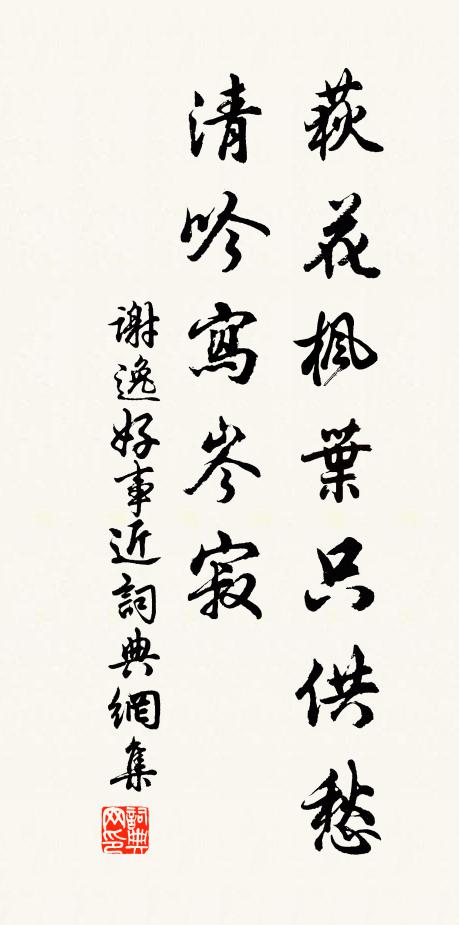 荻花楓葉只供愁
清吟寫岑寂
謝逸好事近詞典網集
詞典网印